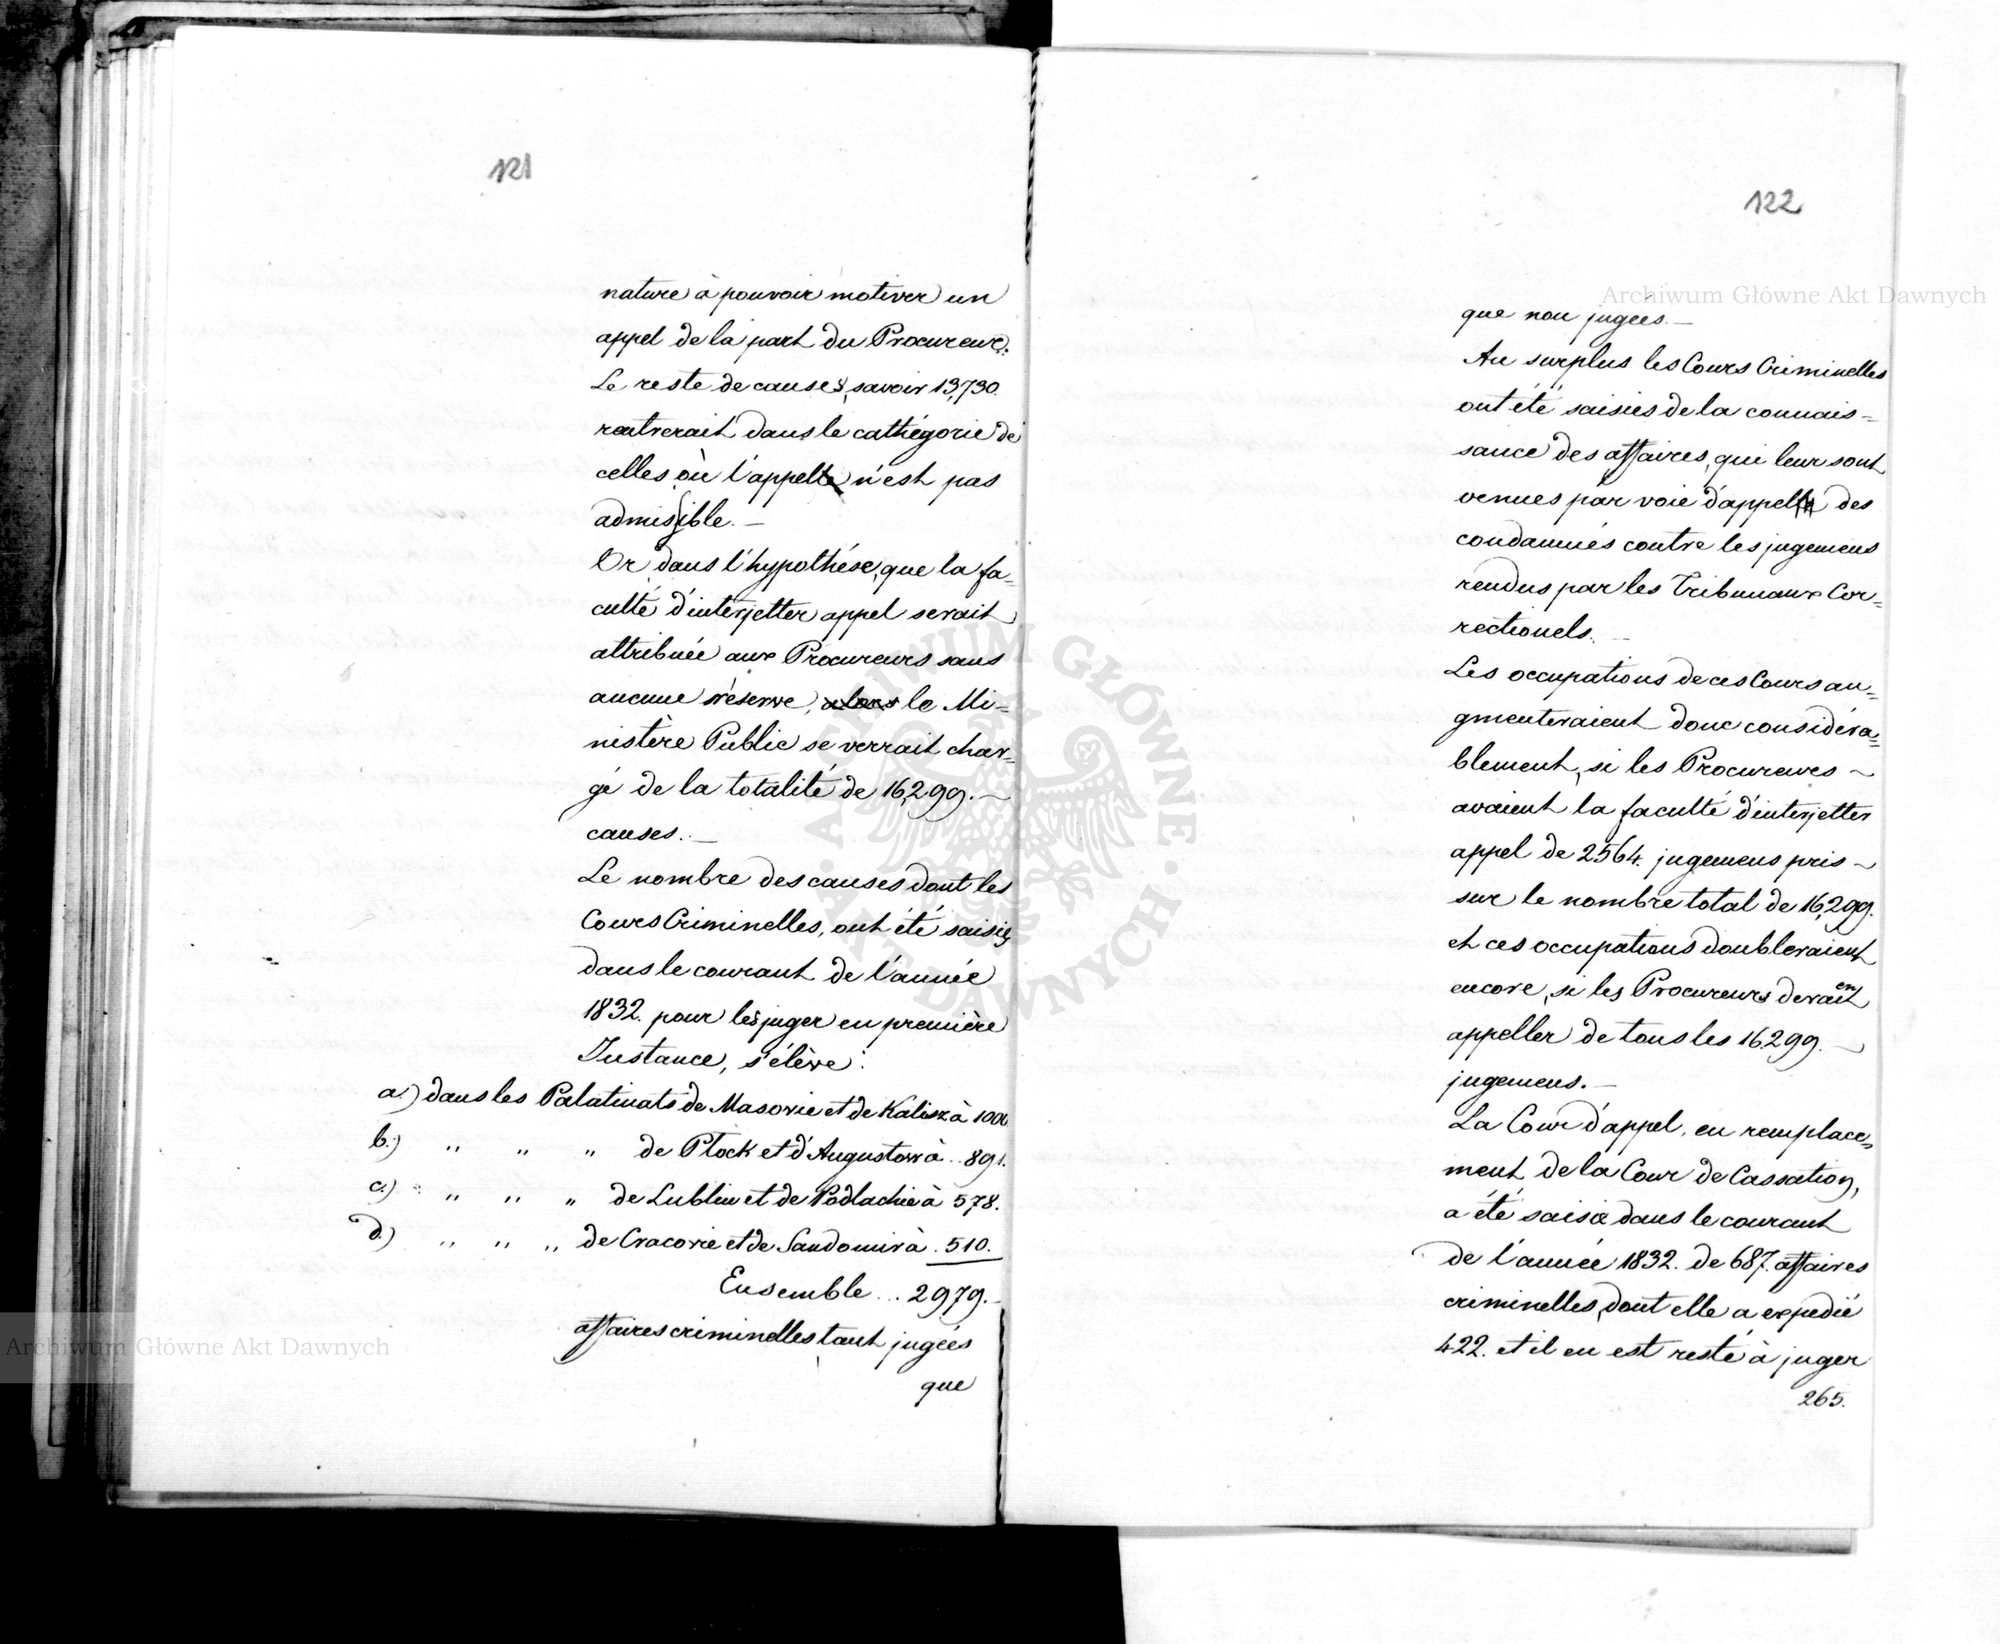 121
nature à pouvoir motiver un
appel de la part du Procureur.
Le reste de causes, savoir 13,730.
rentrerait dans le cathégorie de
celles où l'appel n'est pas
admissible. —
Or dans l'hypothése, que la fa=
culté d'interjetter appel serait
attribuée aux Procureurs sans
aucune réserve, alors le Mi=
nistère Public se verrait char=
gé de la totalité de 16,299. —
causes. —
Le nombre des causes dont les
Cours Criminelles, ont été saisies
dans le courant de l'année
1832. pour les juger en première
Instance, s'élève:
a.) dans les Palatinats de Masovie et de Kalisz à 1000
b.) " " " de Płock et d'Augustow à .. 891.
c.) " " " de Lublin et de Podlachie à 578.
d.) " " " de Cracovie et de Sandomir à . 510.
Ensemble ... 2979. —
affaires criminelles tant jugées
que
122
que non jugées. —
Au surplus les Cours Criminelles
ont été saisies de la connais=
sance des affaires, qui leur sont
venues par voie d'appel des
condamnés contre les jugemens
rendus par les Tribunaux Cor=
rectionels. —
Les occupations de ces Cours au=
gmenteraient donc considéra=
blement, si les Procureurs ~
avaient la faculté d'interjetter
appel de 2564. jugemens pris ~
sur le nombre total de 16,299.
et ces occupations doubleraient
encore, si les Procureurs devraient
appeller de tous les 16,299. —
jugemens. —
La Cour d'appel, en remplace=
ment de la Cour de Cassation,
a été saisie dans le courant
de l'année 1832. de 687. affaires
criminelles, dont elle a expedié
422. et il en est resté à juger
265.
Archiwum Główne Akt Dawnych
Archiwum Główne Akt Dawnych
ARCHIWUM GŁÓWNE AKT DAWNYCH